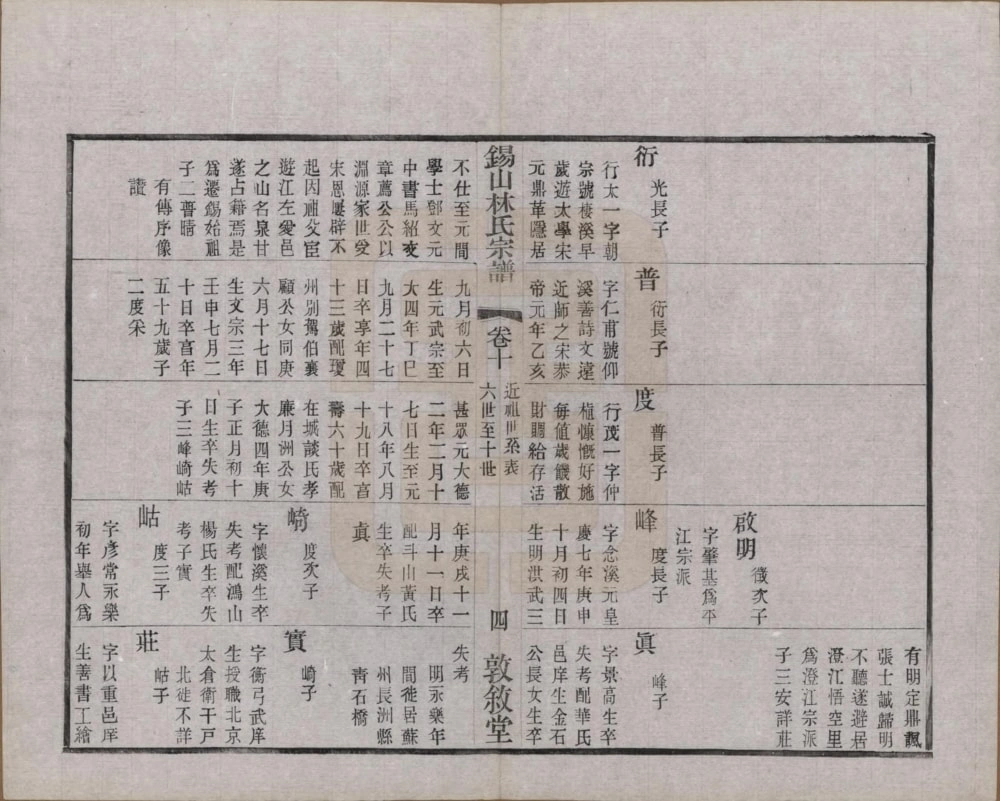 衍 光長子
行太一字朝
宗號棲溪早
歲遊太學宋
元鼎革隱居
不仕至元間
學士鄧文元
中書馬紹交
章薦公公以
淵源家世受
宋恩屢辟不
起因祖父宦
遊江左愛邑
之山名泉甘
遂占籍焉是
爲遷錫始祖
子二普晴
有傳序像
讚
普 衍長子
字仁甫號仰
溪善詩文遠
近師之宋恭
帝元年乙亥
九月初六日
生元武宗至
大四年丁巳
九月二十七
日卒享年四
十三歲配瓊
州別駕伯襄
顧公女同庚
六月十七日
生文宗三年
壬申七月二
十日卒亯年
五十九歲子
二度罙
度 普長子
行茂一字仲
植慷慨好施
每值歲饑散
財賙給存活
甚眾元大德
二年二月十
七日生至元
十八年八月
十九日卒亯
壽六十歲配
在城談氏孝
廉月洲公女
大德四年庚
子正月初十
日生卒失考
子三峰崎岵
啟明 徵次子
字肇基爲平
江宗派
峰 度長子
字念溪元皇
慶七年庚申
十月初四日
生明洪武三
年庚戌十一
月十一日卒
配斗山黃氏
生卒失考子
眞
崎 度次子
字懷溪生卒
失考配鴻山
楊氏生卒失
考子實
岵 度三子
字彥常永樂
初年舉人爲
有明定鼎諷
張士誠歸明
不聽遂避居
澄江悟空里
爲澄江宗派
子三安詳莊
眞 峰子
字景高生卒
失考配華氏
邑庠生金石
公長女生卒
失考
明永樂年
間徙居蘇
州長洲縣
靑石橋
實 崎子
字衡弓武庠
生授職北京
太倉衛干戶
北徙不詳
莊 岵子
字以重邑庠
生善書工繪
錫山林氏宗譜
卷十
近祖世系表
六世至十世
四
敦敘堂